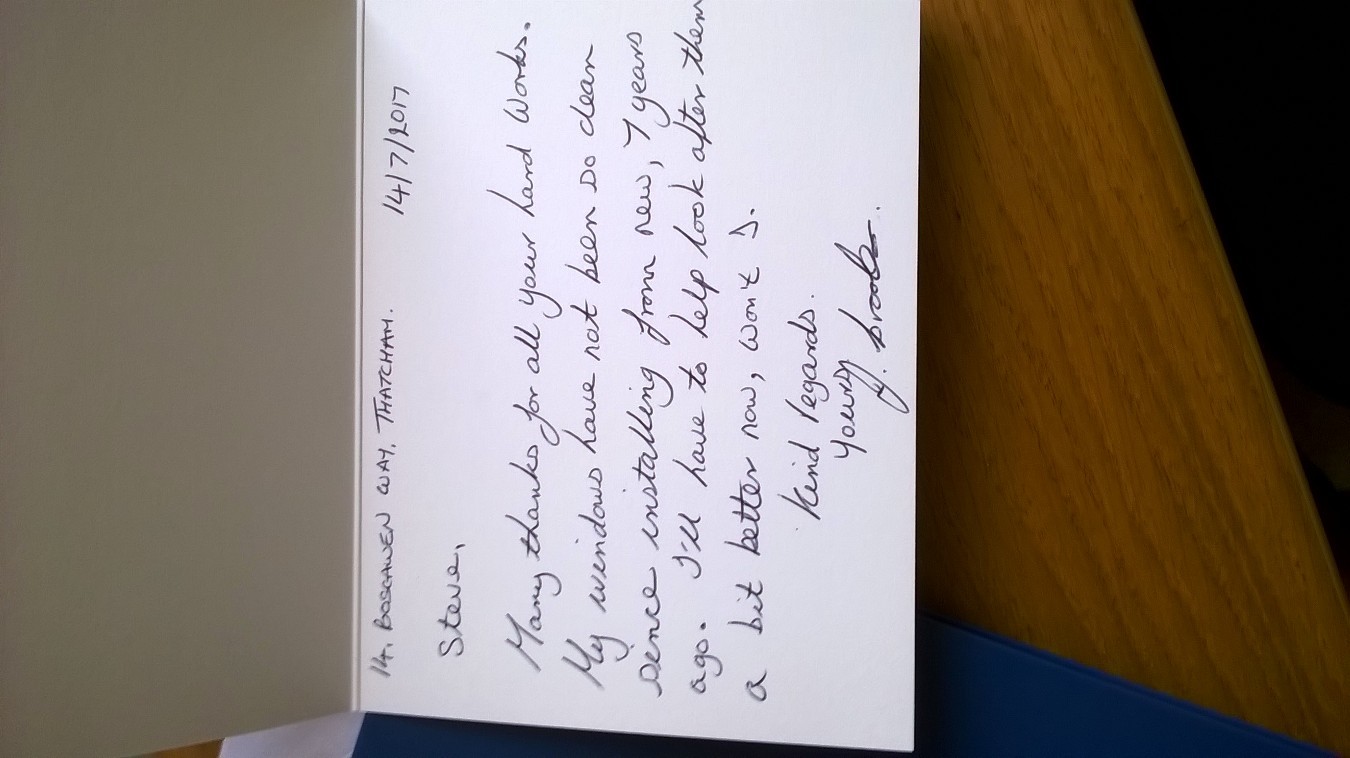 14, BOSCAWEN WAY, THATCHAM. 14/7/2017
Steve,
Many thanks for all your hard works.
My windows have not been so clean
since installing from new, 7 years
ago. I'll have to help look after them
a bit better now, won't I.
Kind regards.
Yours